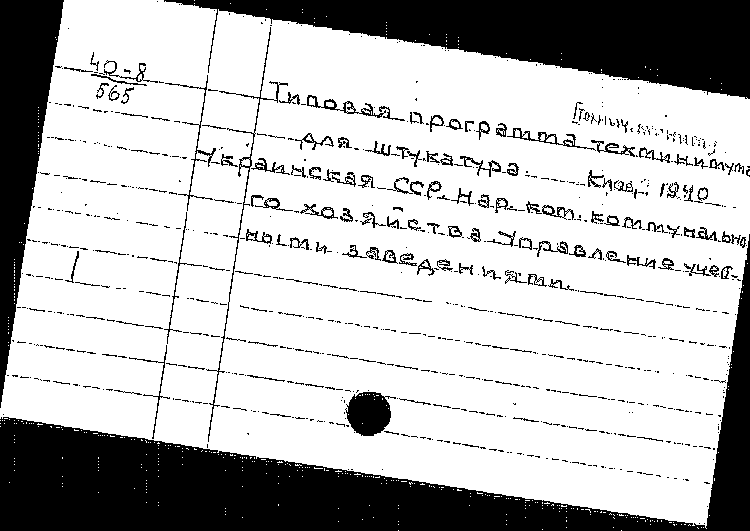 40-8
565
Типовая программа техминимума
для штукатура. Киев, 1940
Украинская ССР. Нар. ком. коммунально
го хозяйства. Управление учеб-
ными заведениями.